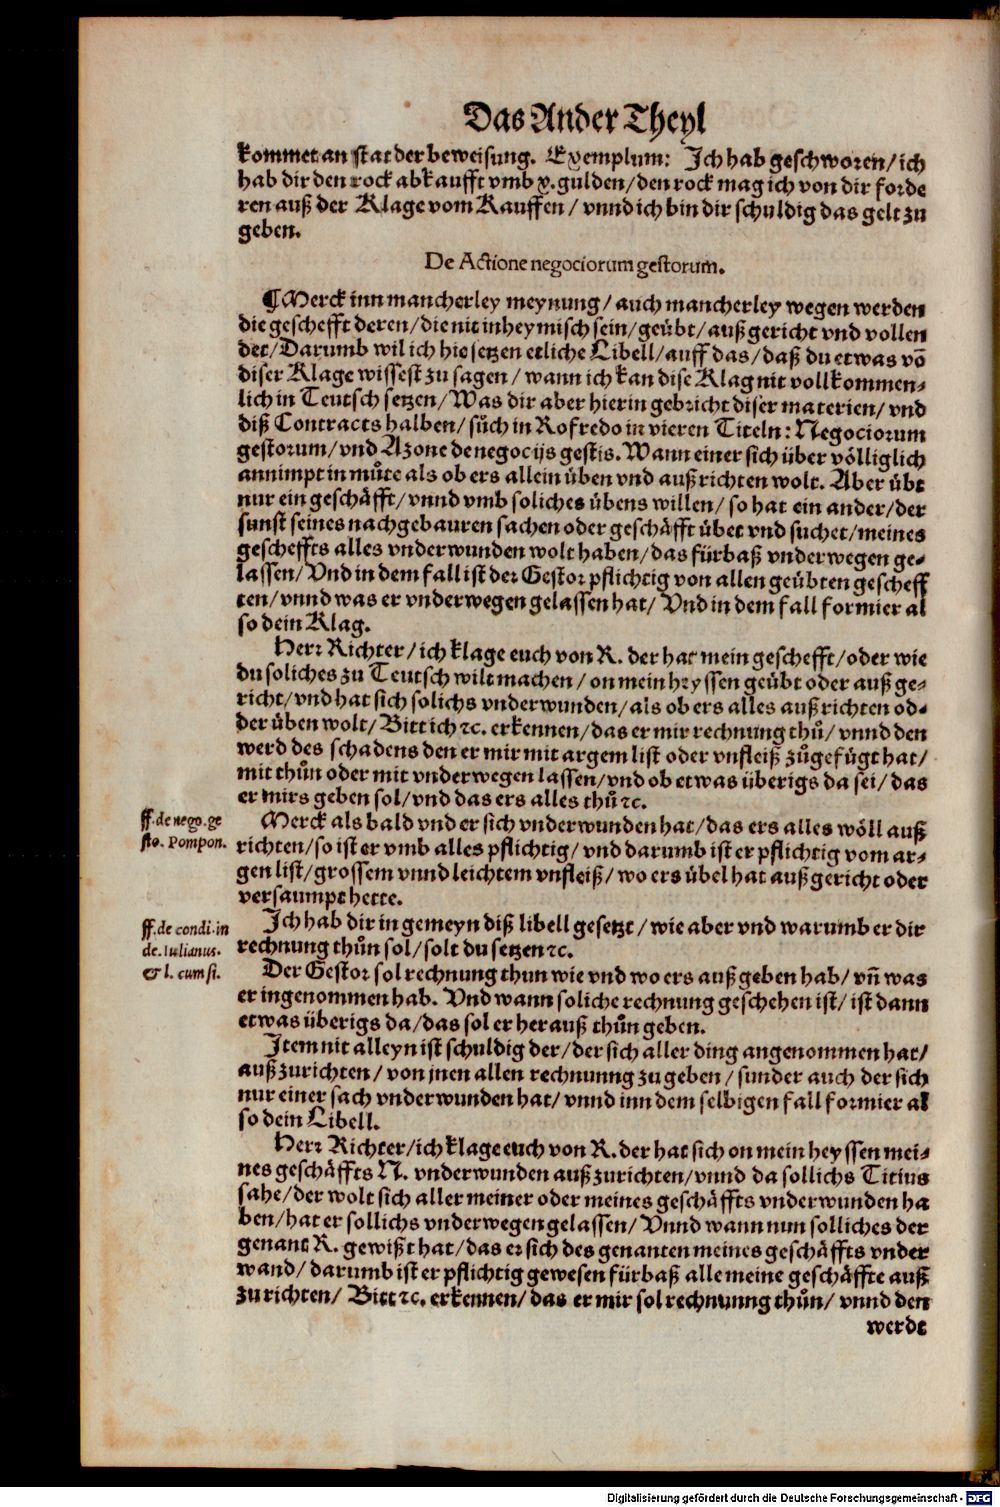 Das Ander Theyl
kommet an stat der beweisung. Exemplum: Ich hab geschworen/ich
hab dir den rock abkaufft vmb x.gulden/den rock mag ich von dir forde
ren auß der Klage vom Kauffen/vnnd ich bin dir schuldig das gelt zu
geben.
De Actione negociorum gestorum.
¶Merck inn mancherley meynung/auch mancherley wegen werden
die geschefft deren/die nit inheymisch sein/geübt/außgericht vnd vollen
det/Darumb wil ich hie setzen etliche Libell/auff das/daß du etwas võ
diser Klage wissest zu sagen/wann ich kan dise Klag nit vollkommen-
lich in Teutsch setzen/Was dir aber hierin gebricht diser materien/vnd
diß Contracts halben/sůch in Rofredo in vieren Titeln: Negociorum
gestorum/vnd Azone de negocijs gestis. Wann einer sich über völliglich
annimpt in můte als ob ers allein üben vnd außrichten wolt. Aber übt
nur ein geschäfft/vnnd vmb soliches übens willen/so hat ein ander/der
sunst seines nachgebauren sachen oder geschäfft übet vnd suchet/meines
gescheffts alles vnderwunden wolt haben/das fürbaß vnderwegen ge-
lassen/Vnd in dem fall ist der Gestor pflichtig von allen geübten gescheff
ten/vnnd was er vnderwegen gelassen hat/Vnd in dem fall formier al
so dein Klag.
Herr Richter/ich klage euch von R. der hat mein geschefft/oder wie
du soliches zu Teutsch wilt machen/on mein heyssen geübt oder außge-
richt/vnd hat sich solichs vnderwunden/als ob ers alles außrichten od-
der üben wolt/Bitt ich ꝛc. erkennen/das er mir rechnung thů/vnnd den
werd des schadens den er mir mit argem list oder vnfleiß zůgefügt hat/
mit thůn oder mit vnderwegen lassen/vnd ob etwas überigs da sei/das
er mirs geben sol/vnd das ers alles thů ꝛc.
ff. de nego. ge
sto. Pompon.
Merck als bald vnd er sich vnderwunden hat/das ers alles wöll auß
richten/so ist er vmb alles pflichtig/vnd darumb ist er pflichtig vom ar-
gen list/grossem vnnd leichtem vnfleiß/wo ers übel hat außgericht oder
versaumpt hette.
ff. de condi. in
de. Iulianus.
& l. cum si.
Ich hab dir in gemeyn diß libell gesetzt/wie aber vnd warumb er dir
rechnung thůn sol/solt du setzen ꝛc.
Der Gestor sol rechnung thun wie vnd wo ers außgeben hab/vñ was
er ingenommen hab. Vnd wann soliche rechnung geschehen ist/ist dann
etwas überigs da/das sol er herauß thůn geben.
Item nit alleyn ist schuldig der/der sich aller ding angenommen hat/
außzurichten/von jnen allen rechnunng zu geben/sunder auch der sich
nur einer sach vnderwunden hat/vnnd inn dem selbigen fall formier al
so dein Libell.
Herr Richter/ich klage euch von R. der hat sich on mein heyssen mei-
nes geschäffts N. vnderwunden außzurichten/vnnd da sollichs Titius
sahe/der wolt sich aller meiner oder meines geschäffts vnderwunden ha
ben/hat er sollichs vnderwegen gelassen/Vnnd wann nun solliches der
genant R. gewißt hat/das er sich des genanten meines geschäffts vnder
wand/darumb ist er pflichtig gewesen fürbaß alle meine geschäffte auß
zurichten/Bitt ꝛc. erkennen/das er mir sol rechnunng thůn/vnnd den
werdt
Digitalisierung gefördert durch die Deutsche Forschungsgemeinschaft - DFG